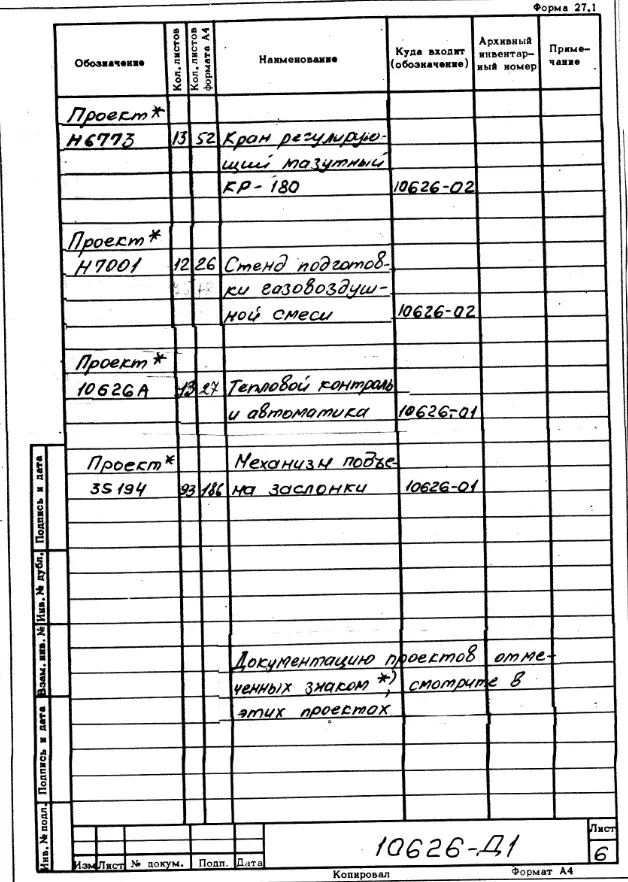 Форма 27.1
Обозначение
Кол. листов
Кол. листов формата А4
Наименование
Куда входит (обозначение)
Архивный инвентарный номер
Примечание
Проект*
Н6773 13 52 Кран регулирую-
щий мазутный
КР-180 10626-02
Проект*
Н7001 12 26 Стенд подготов-
ки газовоздуш-
ной смеси 10626-02
Проект*
10626А 13 27 Тепловой контроль
и автоматика 10626-01
Проект* Механизм подъе-
3S194 93 186 на заслонки 10626-01
Документацию проектов отме-
ченных знаком *), смотрите в
этих проектах
Инв. № подл. Подпись и дата Взам. инв. № Инв. № дубл. Подпись и дата
Изм Лист № докум. Подп. Дата
10626-Д1
Лист
6
Копировал Формат А4